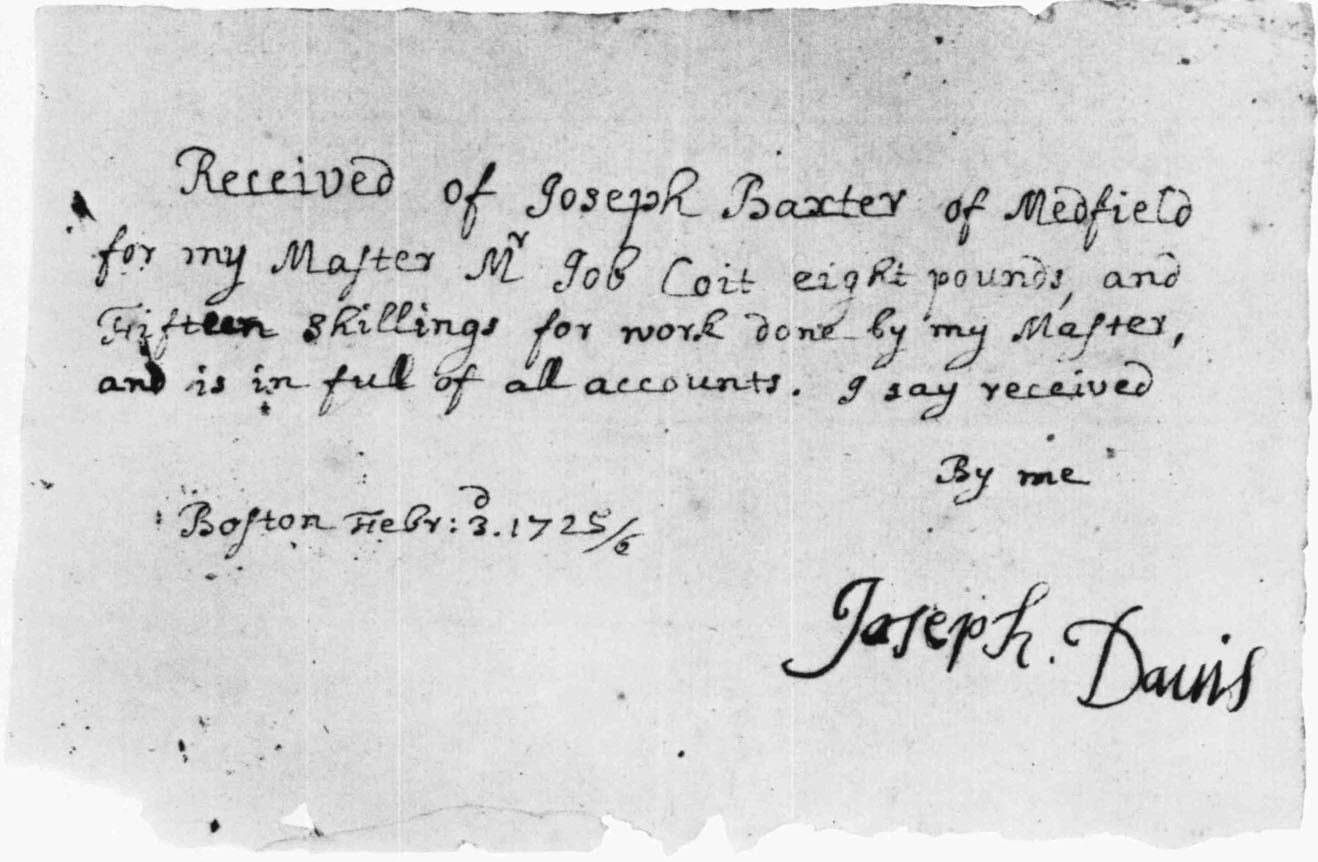 Received of Joseph Baxter of Medfield
for my Maſter Mʳ Job Coit eight pounds, and
Fifteen Shillings for work done by my Maſter,
and is in full of all accounts. I say received
By me
Boſton Febr: 3ᵈ. 1725/6
Joseph. Davis